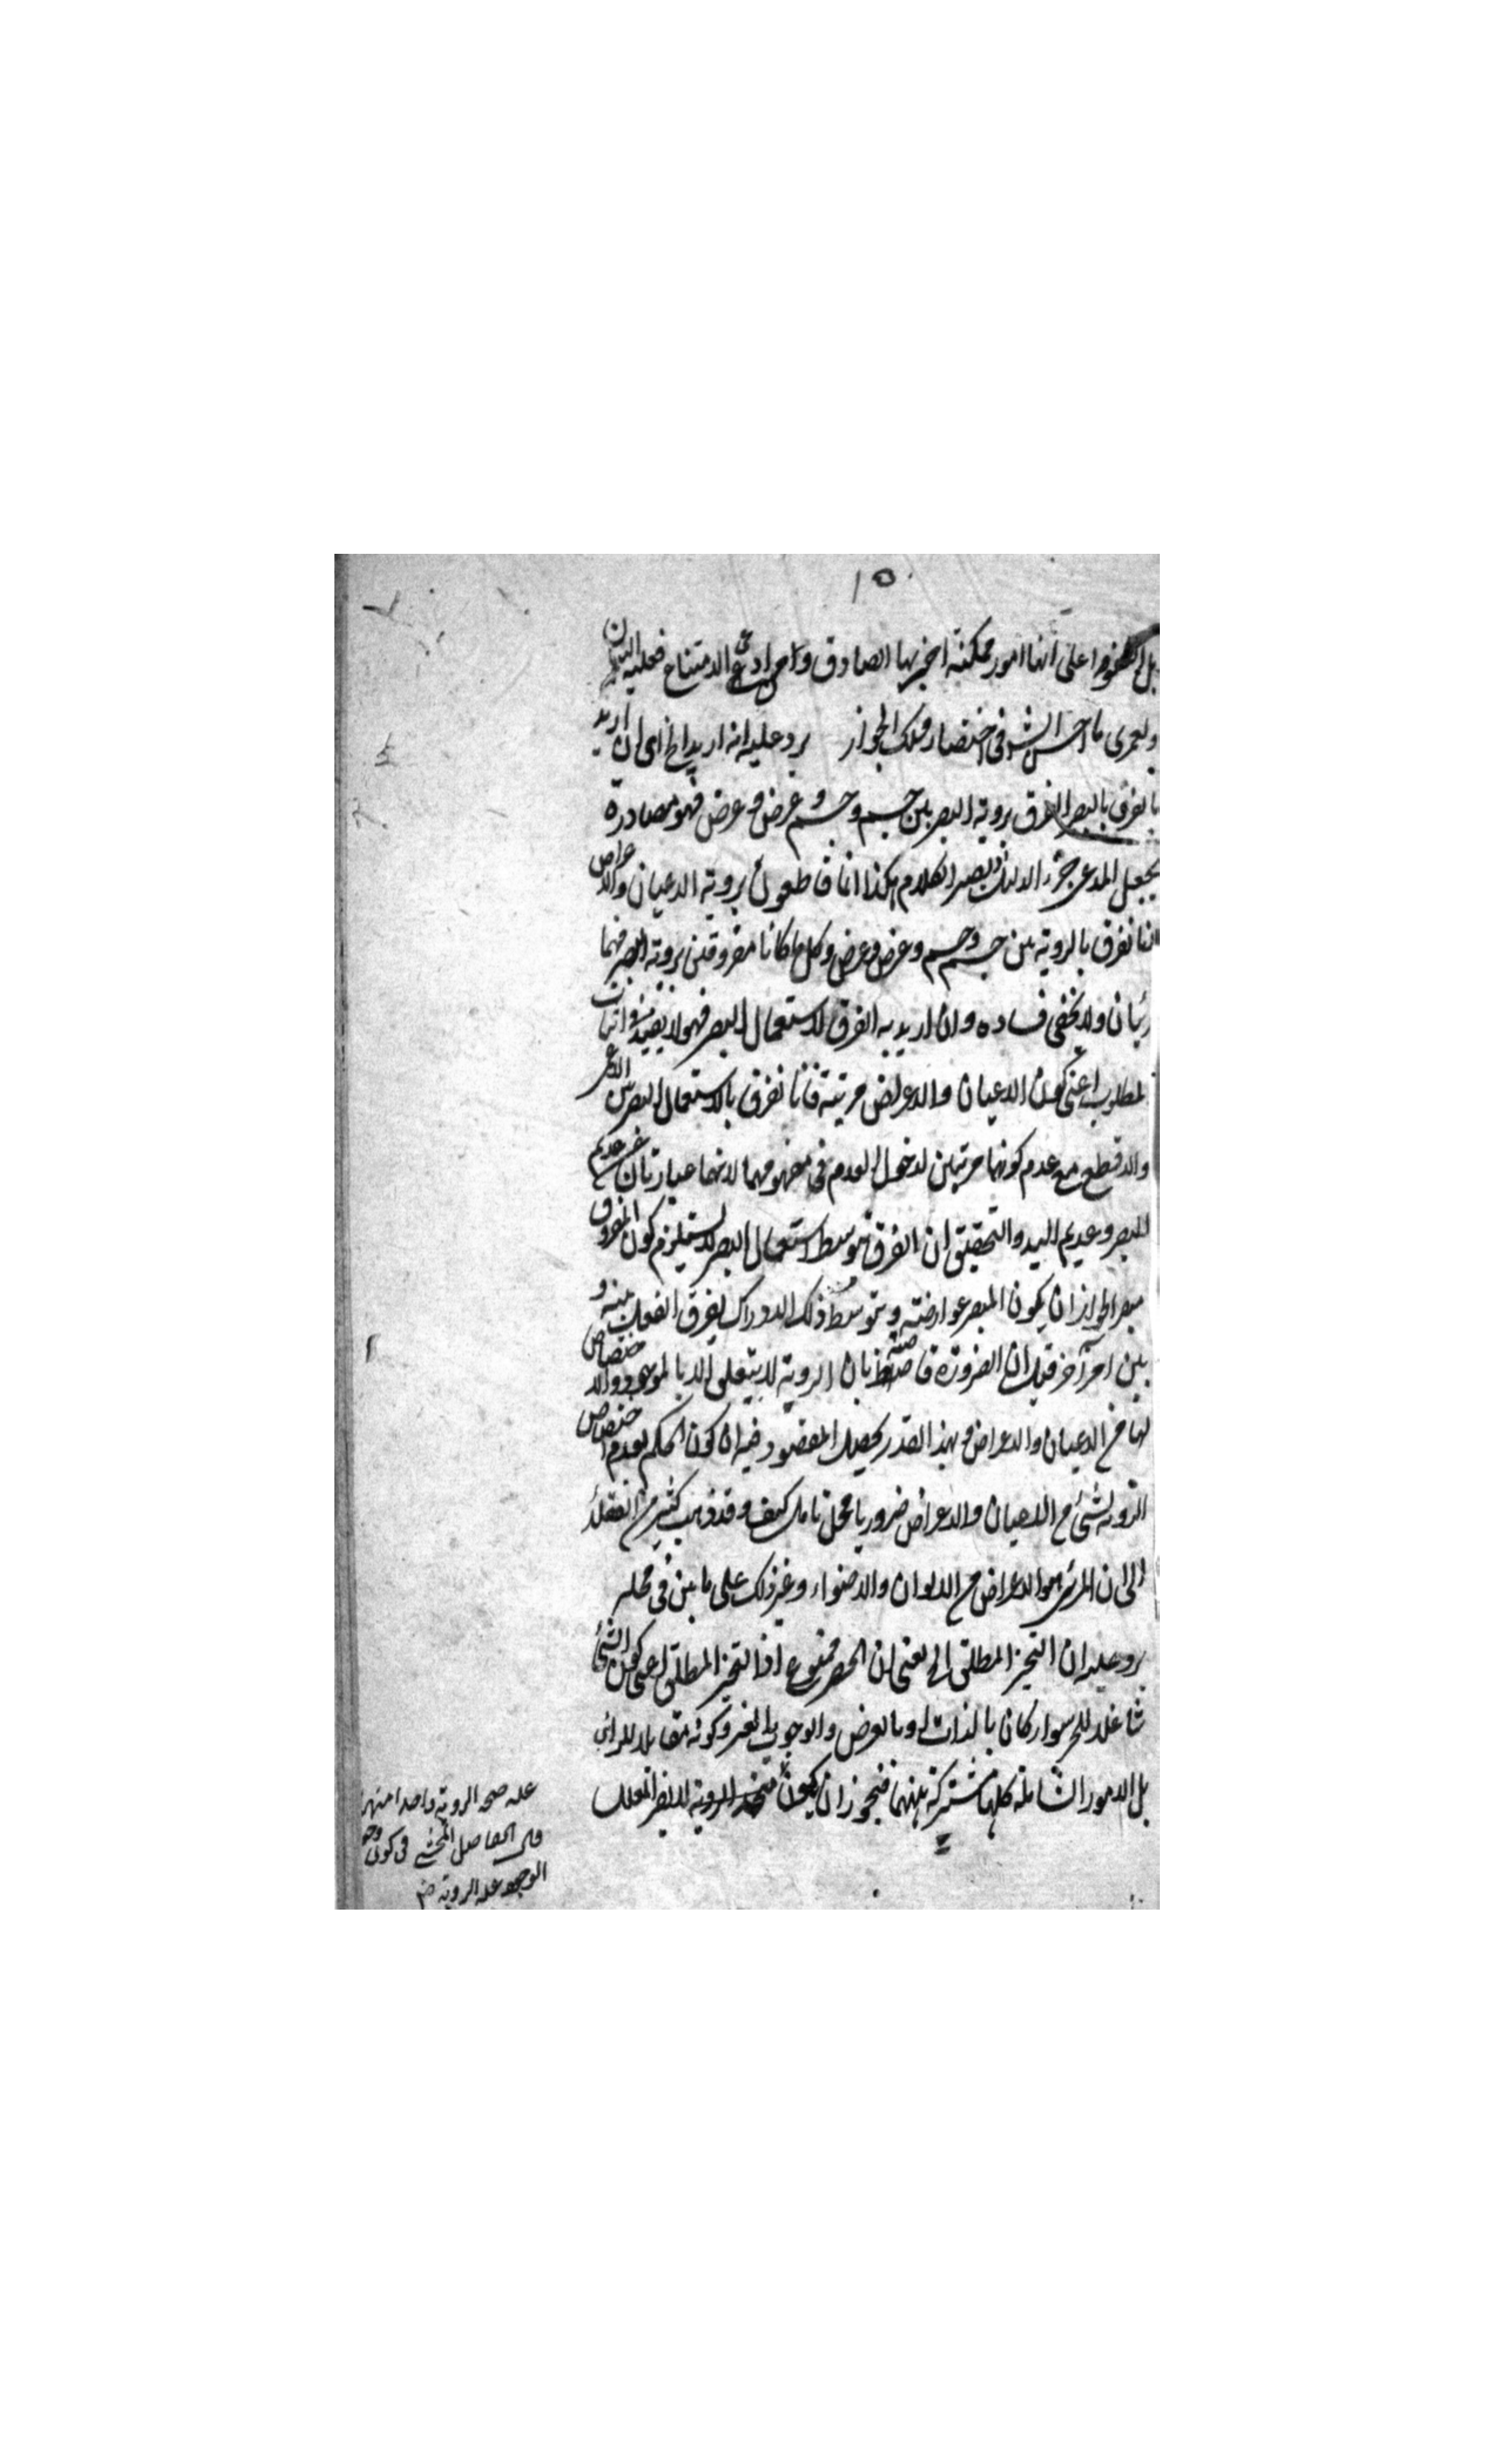 ١٥
بل اكتفوا على انها امور ممكنة اخبر بها الصادق ومن ادعى الامتناع فعليه البيان
ولعمرى ما احسن الش فى اختصار مسلك الجواز يرد عليه انه اريد الخ اى ان اريد
بالفرق بالبصر الفرق بروية البصر بين جسم وجسم وعرض وعرض فهو مصادرة
يجعل المدعى جزء الدليل ويصير الكلام هكذا انا قاطعون بروية الاعيان والاعراض
لاننا نفرق بالروية بين جسم وجسم وعرض وعرض وكل ما كانا مفروقين بروية البصر فهما
رئيان ولا يخفى فساده وان اريد به الفرق لاستعمال البصر فهو لا يفيد اثبات
لمطلوب اعنى كون الاعيان والاعراض مرئية فانا نفرق باستعمال البصر بين الاعمى
والاقطع مع عدم كونهما مرئيين لدخول العدم فى مفهومهما لانهما عبارتان عن عديم
البصر وعديم اليد والتحقيق ان الفرق بتوسط استعمال البصر لا يستلزم كون المفروق
مبصرا لجواز ان يكون المبصر عوارضه وبتوسط ذلك الادراك يفرق العقل بينه و
بين امر آخر قيل ان الضرورة قاضية بان الروية لا يتعلق الا بالموجود والاختصاص
لها من الاعيان والاعراض وبهذا القدر يحصل المقصود فيه ان كون الحكم بعدم اختصاص
الروية لشئ من الاعيان والاعراض ضروريا محل تامل كيف وقد ذهب كثير من العقلاء
الى ان المرئى هو الاعراض من الالوان والاضواء وغير ذلك على ما بين فى محله
يرد عليه ان التحيز المطلق الخ يعنى ان الحصر ممنوع اذ التحيز المطلق اعنى كون الشئ
شاغلا للحيز سواء كان بالذات او بالعرض والوجوب بالغير وكونه مقابلا للرائى
بل الامور الشاملة كلها مشتركة بينهما فيجوز ان يكون
علة صحة الروية واحدا منها
قال الفاضل المحشى فى كون
الوجود علة الروية